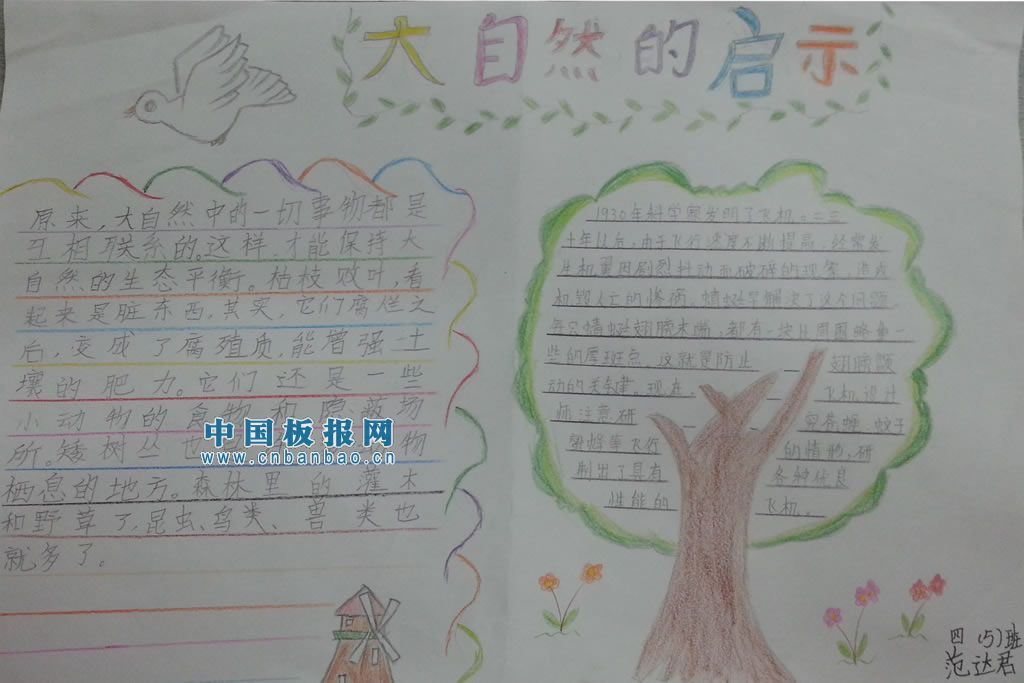 大自然的启示
原来,大自然中的一切事物都是
互相联系的。这样,才能保持大
自然的生态平衡。枯枝败叶,看
起来是脏东西,其实,它们腐烂之
后,变成了腐殖质,能增强土
壤的肥力。它们还是一些
小动物的食物和隐蔽场
所。矮树丛也物
栖息的地方。森林里的灌木
和野草了,昆虫、鸟类、兽类也
就多了。
中国板报网
www.cnbanbao.cn
1930年科学家发明了飞机。二三
十年以后,由于飞行速度不断提高,经常发
生机翼因剧烈抖动而破碎的现象,造成
机毁人亡的惨祸。蜻蜓早解决了这个问题。
每只蜻蜓翅膀末端,都有一块比周围略重一
些的厚斑点,这就是防止翅膀颤
动的关键。现在,飞机设计
师注意研苍蝇、蚊子
蜜蜂等飞行的情形,研
制出了具有各种优良
性能的飞机。
四(5)班
范达君